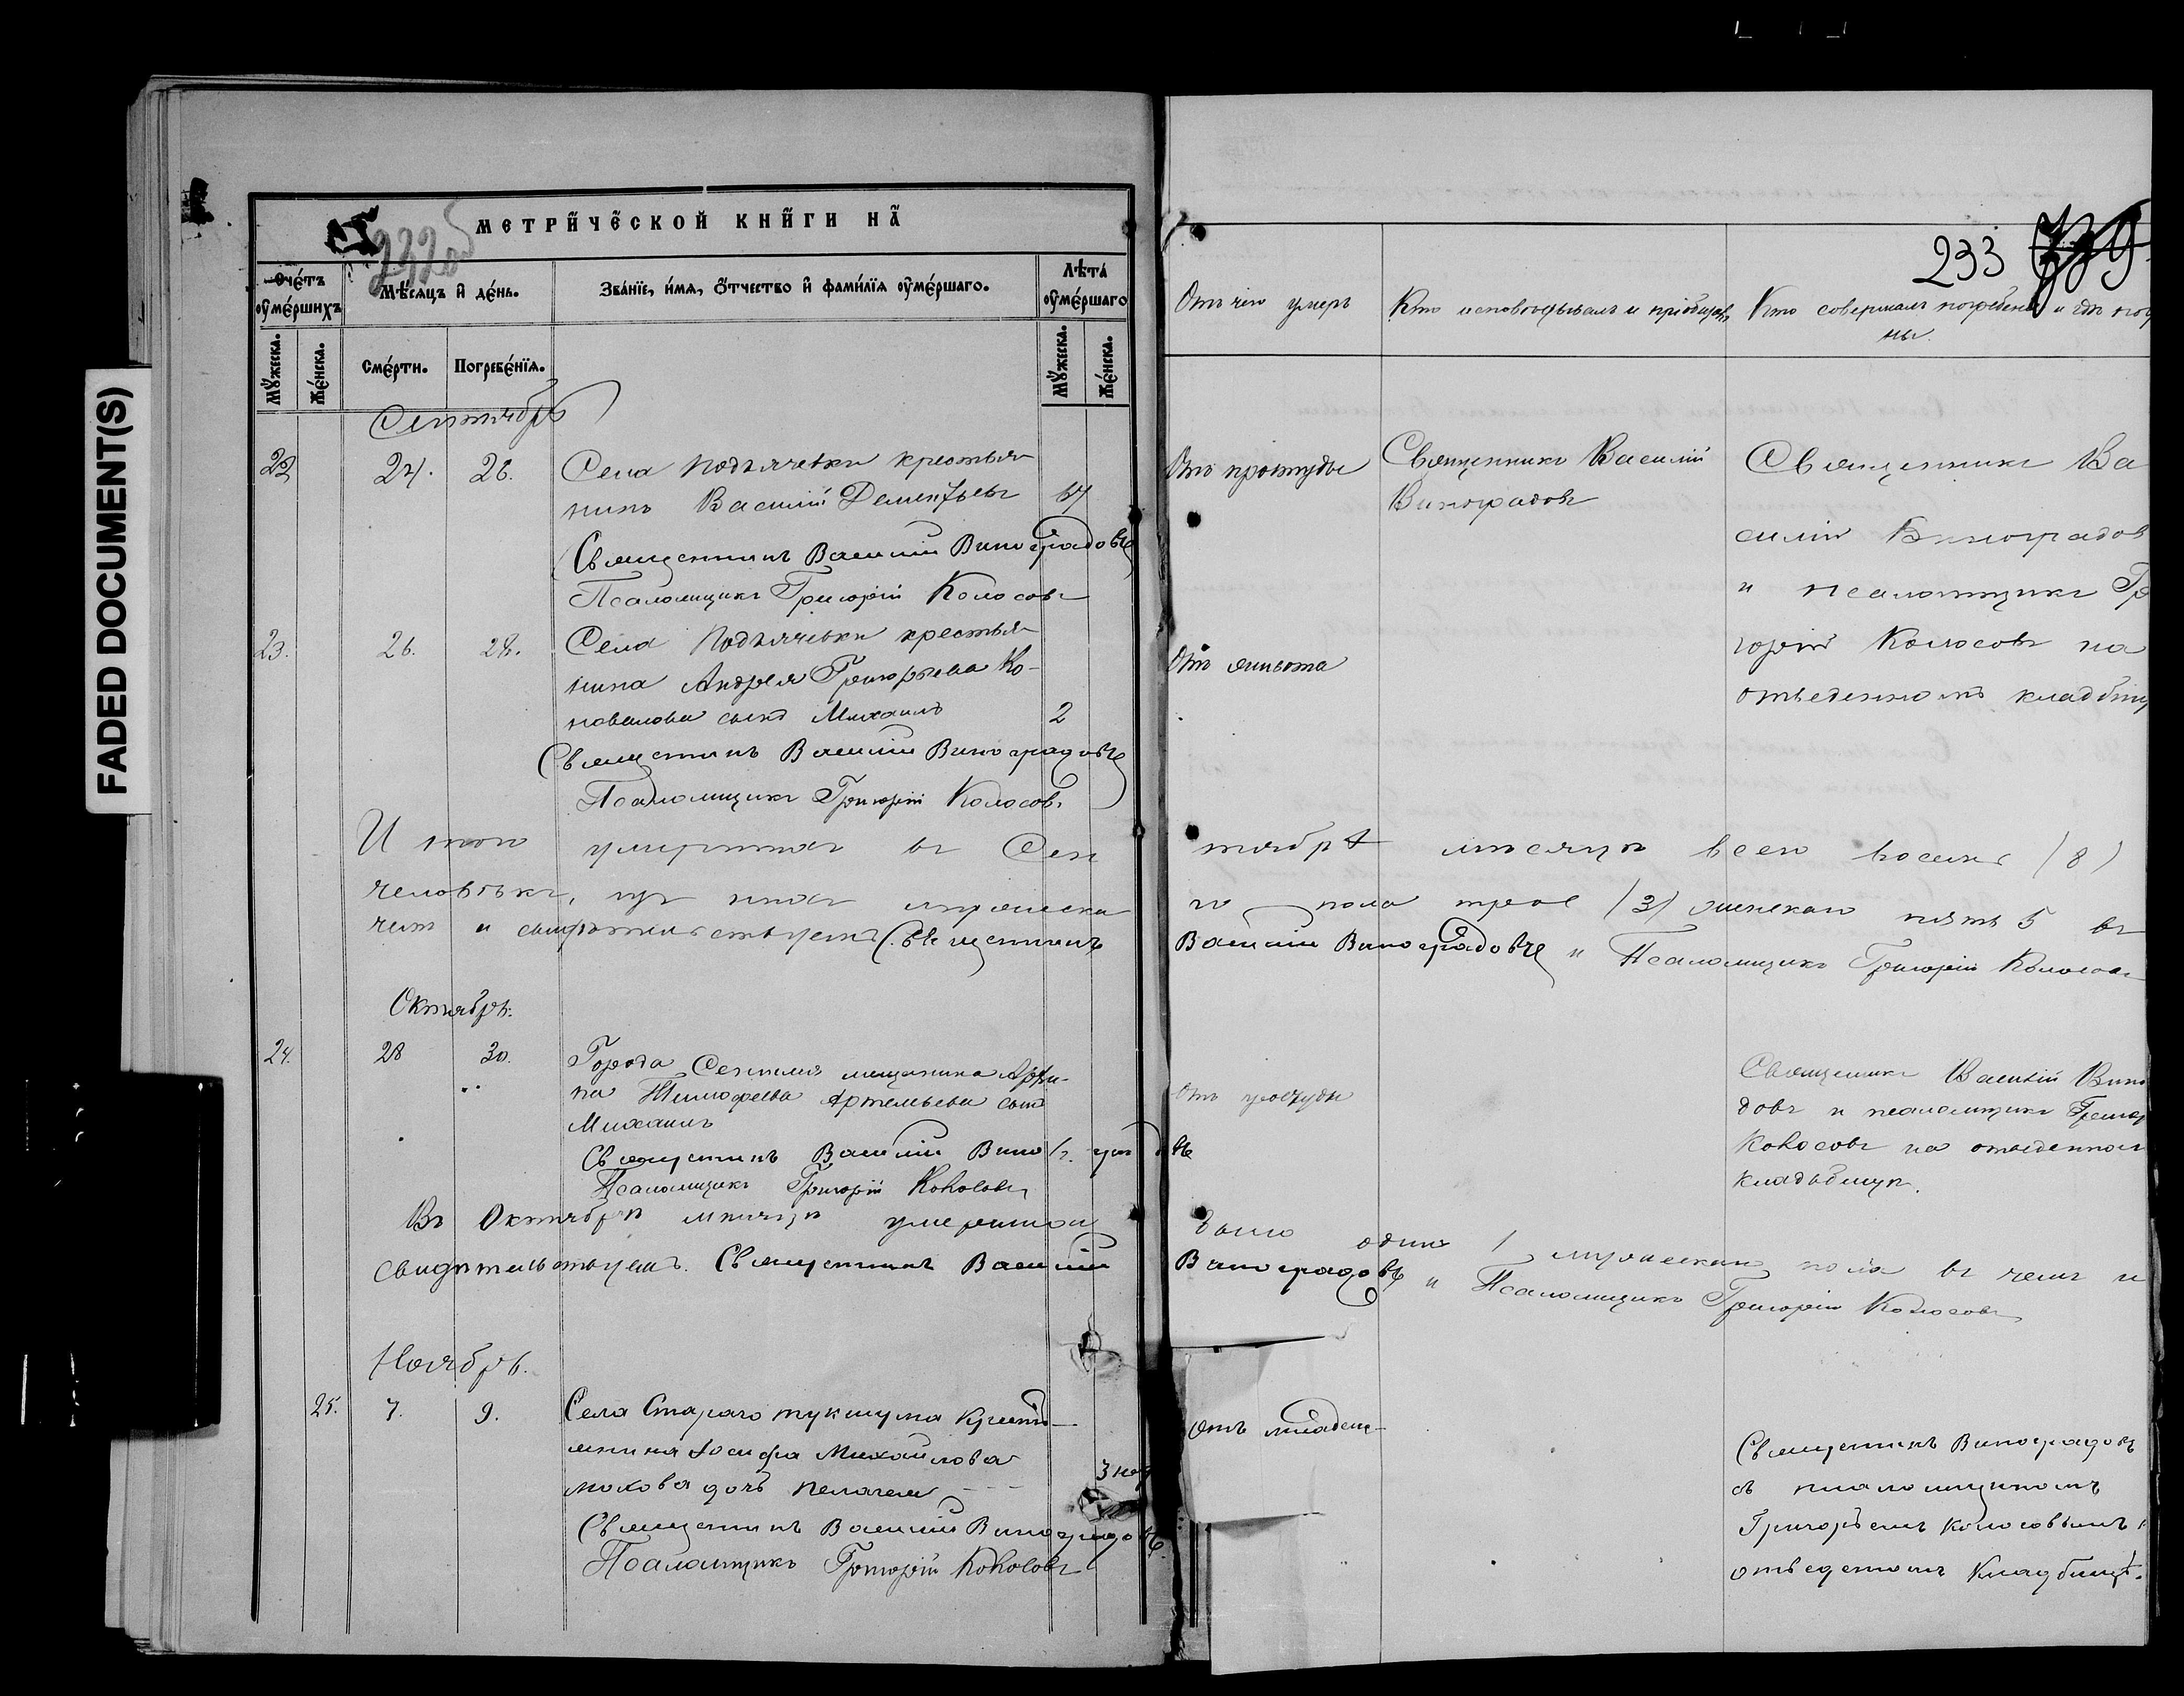 FADED DOCUMENT(S)
232об
МЕТРИЧЕСКОЙ КНИГИ НА
Счетъ умершихъ
Мѣсяцъ и день.
Званіе, имя, отчество и фамилія умершаго.
Лѣта умершаго
Мужеска.
Женска.
Смерти.
Погребенія.
Мужеска.
Женска.
Сентябрь
22 24. 26. Села Подъячевки крестья
нинъ Василій Дементьевъ 67
Священникъ Василій Виноградовъ
Псаломщикъ Григорій Колосовъ
23. 26. 28. Села Подъячевки крестья
нина Андрея Григорьева Ко-
новалова сынъ Михаилъ 2
Священникъ Василій Виноградовъ
Псаломщикъ Григорій Колосовъ
Итого умершихъ въ Сен
человѣкъ, изъ нихъ мужеска
чемъ и свидѣтельствуемъ Священникъ
Октябрь.
24. 28 30. Города Сенгилея мещанина
Тимофеева Артемьева сынъ
Михаилъ
Священникъ Василій Виноградовъ
Псаломщикъ Григорій Колосовъ
Въ Октябрѣ мѣсяцѣ умершихъ
свидѣтельствуемъ. Священникъ Василій
Ноябрь.
25. 7. 9. Села Стараго Тукшума
Іосифа Михайлова
дочь Пелагея 3 нед
Священникъ Василій Виноградовъ
Псаломщикъ Григорій Колосовъ
233
Отъ чего умеръ
Кто исповѣдывалъ и пріобщалъ
Кто совершалъ погребеніе и гдѣ пог
ны.
Отъ простуды
Священникъ Василій
Виноградовъ
Священникъ Ва
силій Виноградов
и псаломщикъ Гр
горій Колосовъ на
отведенномъ кладбищ
Отъ живота
тябрѣ мѣсяцѣ всего восемь (8)
го пола трое (3) женскаго пять 5 въ
Василій Виноградовъ и Псаломщикъ Григорій Колосовъ
Отъ простуды
Священникъ Василій Вино
довъ и псаломщикъ Григор
Колосовъ на отведенном
кладбищѣ.
было одинъ 1 мужескаго пола въ чемъ и
Виноградовъ и Псаломщикъ Григорій Колосовъ
Отъ младен-
Священникъ Виноградовъ
съ псаломщикомъ
Григорьемъ Колосовымъ н
отведеномъ кладбищѣ.